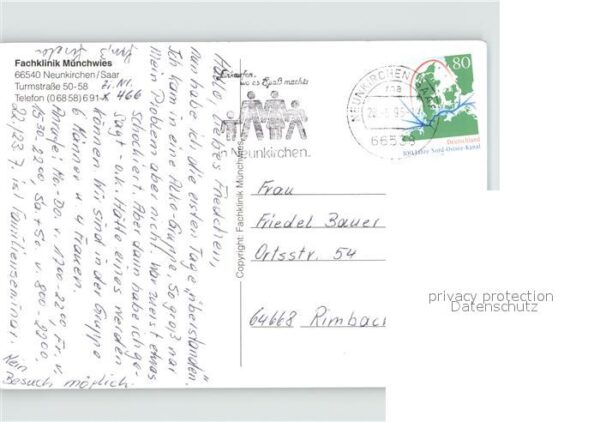 Fachklinik Münchwies
66540 Neunkirchen/Saar
Turmstraße 50-58
Telefon (06858) 691-
Zi. Nr.
466
Hallo, liebes Friedchen,
nun habe ich die ersten Tage „überstanden."
Ich kam in eine Alko-Gruppe. So groß war
mein Problem aber nicht. War zuerst etwas
schockiert. Aber dann habe ich ge-
sagt - o.k. Hätte eines werden
können. Wir sind in der Gruppe
6 Männer u. 4 Frauen.
Anrufe: Mo.-Do. v. 17.00-22.00, Fr. v.
15.30-22.00, Sa + So. v. 8.00-22.00.
22./23.7. ist Familienseminar. Kein
Besuch möglich.
Einkaufen,
wo es Spaß macht
Neunkirchen.
NEUNKIRCHEN, SAAR
66538
80
Deutschland
100 Jahre Nord-Ostsee-Kanal
Copyright: Fachklinik Münchwies
Frau
Friedel Bauer
Ortsstr. 54
64668 Rimbach
privacy protection
Datenschutz